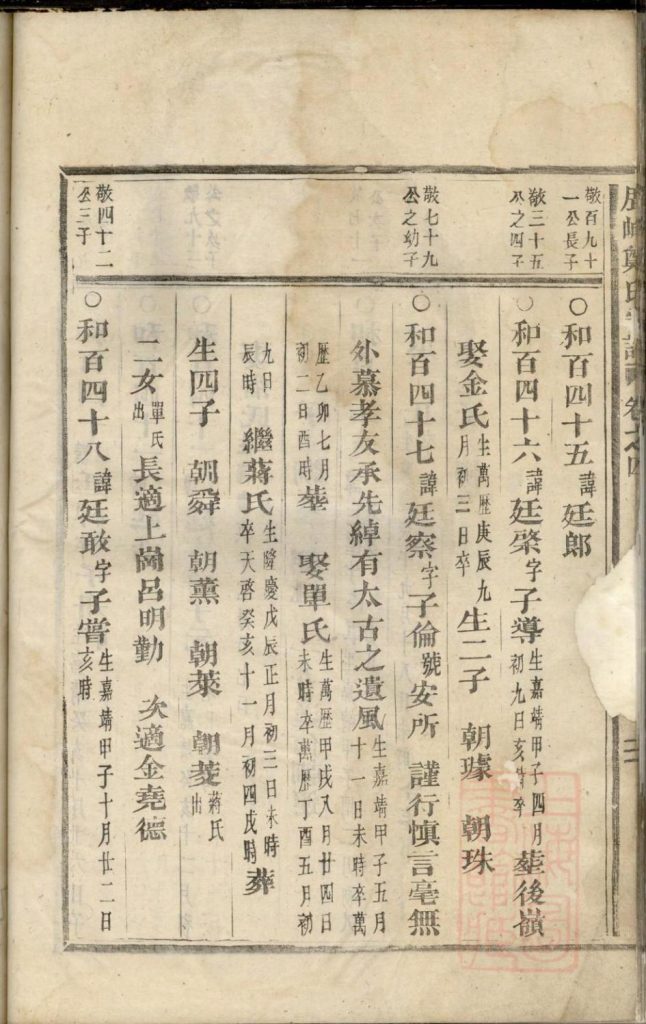 鄭氏
卷之四
敬百九十一公長子
○和百四十五 諱廷郎
敬三十五公之四子
○和百四十六 諱廷棨字子導 生嘉靖甲子四月初九日亥時卒 塟後嶺
娶金氏 生萬歷庚辰九月初三日卒 生二子 朝璩 朝珠
敬七十九公之幼子
○和百四十七 諱廷察字子倫號安所 謹行慎言毫無
外慕孝友承先綽有太古之遺風 生嘉靖甲子五月十一日未時卒萬
歷乙卯七月初二日酉時 塟 娶單氏 生萬歷甲戌又月廿四日未時卒萬歷丁酉五月初
九日辰時 繼蔣氏 生隆慶戊辰正月初三日未時卒天啓癸亥十一月初四戌時 葬
生四子 朝舜 朝薰 朝萊 朝菱 蔣氏出
二女 單氏出 長適上崗呂明勤 次適金堯德
敬四十二公三子
○和百四十八 諱廷敢字子嘗 生嘉靖甲子十月廿二日亥時